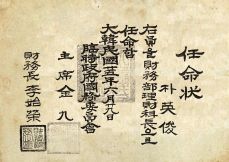 任命狀
朴英俊
右員을財務部理財科長으로
任命함
大韓民國二十五年六月八日
臨時政府國務委員會
主席金九
財務長李始榮